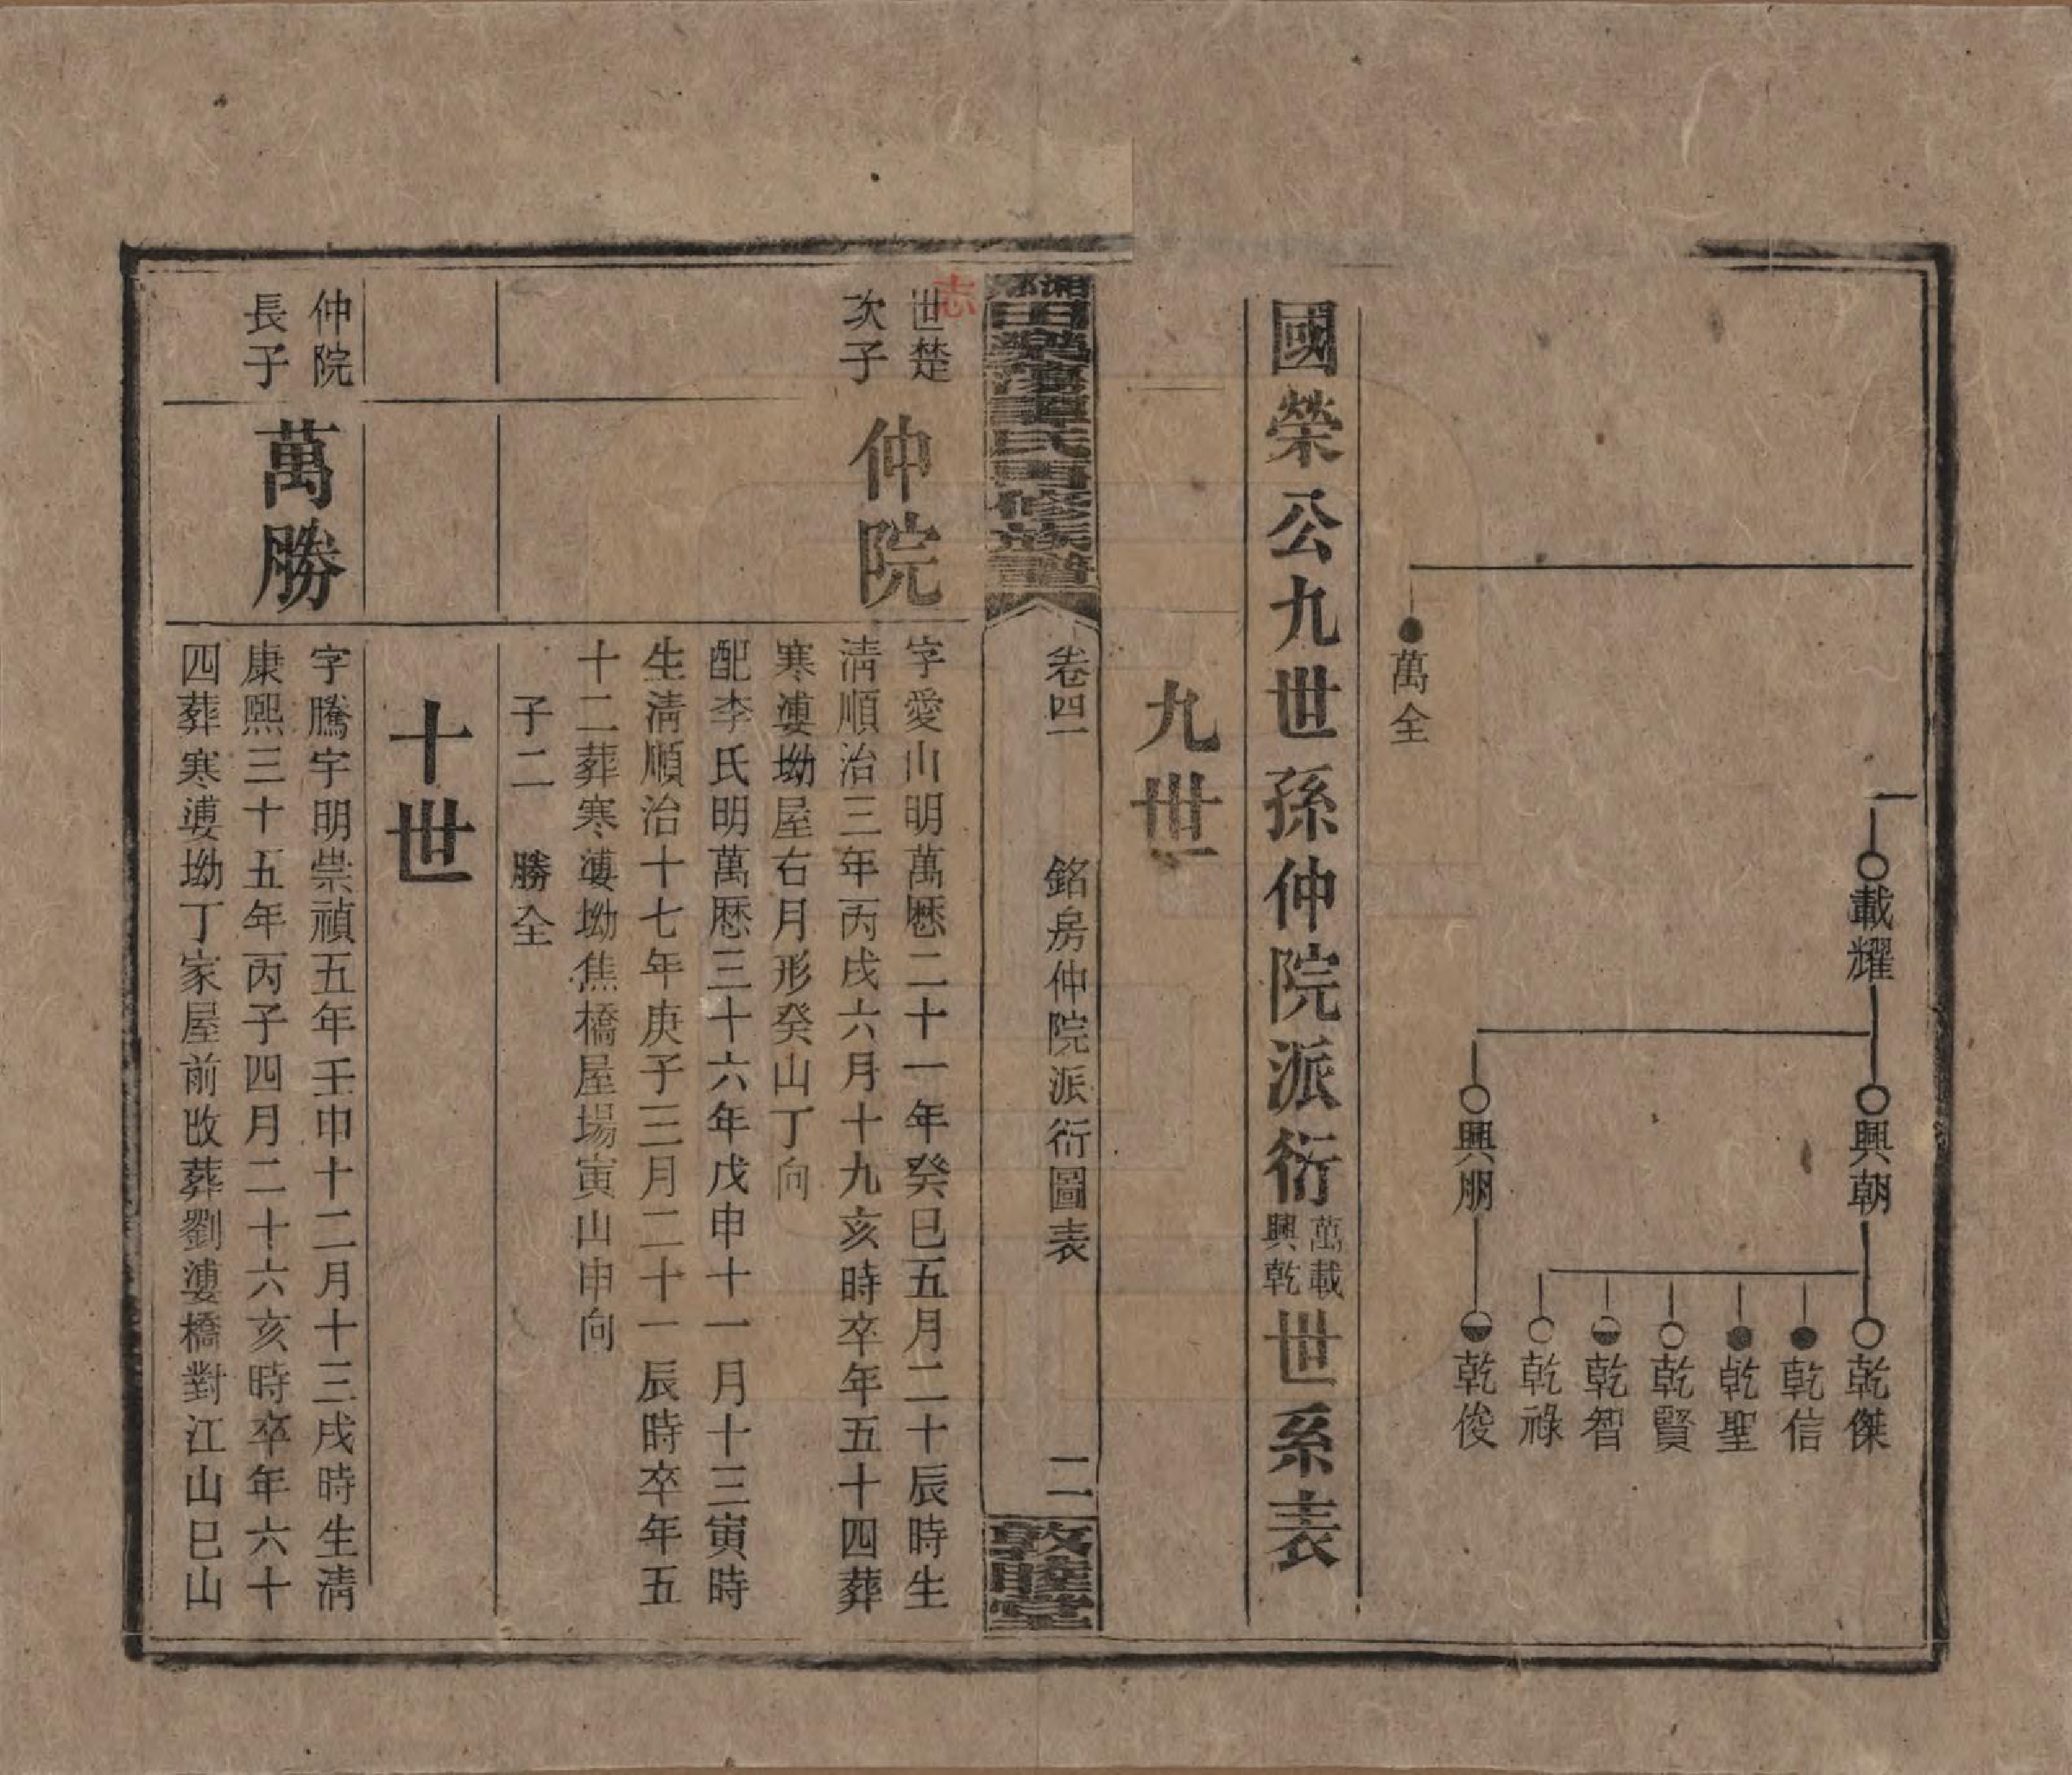 載耀
興朝
興朋
乾傑
乾信
乾聖
乾賢
乾智
乾祿
乾俊
萬全
國榮公九世孫仲院派衍萬載興乾世系表
九世
卷四一
銘房仲院派衍圖表
二
敦睦堂
志
世楚
次子
仲院
字愛山明萬厯二十一年癸巳五月二十辰時生
清順治三年丙戌六月十九亥時卒年五十四葬
寒婆坳屋右月形癸山丁向
配李氏明萬厯三十六年戊申十一月十三寅時
生清順治十七年庚子三月二十一辰時卒年五
十二葬寒婆坳焦橋屋場寅山申向
子二 勝全
十世
仲院
長子
萬勝
字騰宇明崇禎五年壬申十二月十三戌時生清
康熙三十五年丙子四月二十六亥時卒年六十
四葬寒婆坳丁家屋前改葬劉婆橋對江山巳山